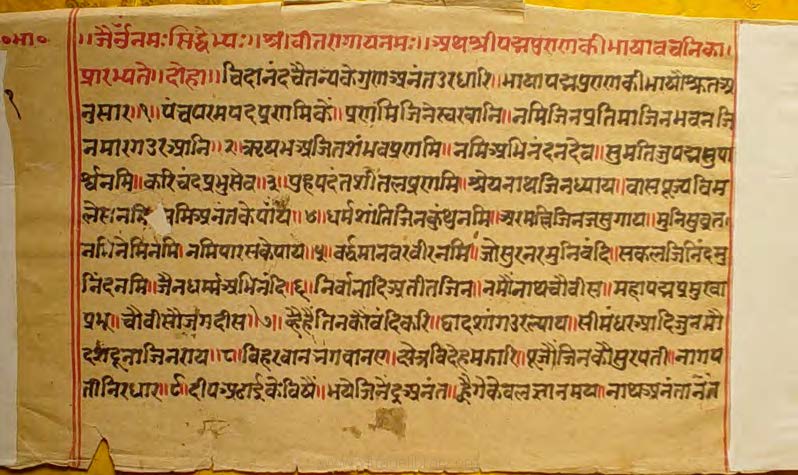 ॰भा॰
।।जैनंनमः सिद्धेभ्यः।।श्री वीतरागायनमः।।अथश्रीपद्मपुराणकीभाषावचनिका।
प्रारभ्यते।।दोहा।।चिदानंदचैतन्यकेगुणअनंतउरधारि।।भाषापद्मपुराणकीभाषौंश्रुतअ
१
नुसार।।१।।पंचपरमपदप्रणमिकैं।।प्रणमिजिनेस्वरवानि।।नमिजिनप्रतिमाजिनभवनजि
नमारगउरआनि।।२।।ऋषभअजितशंभवप्रणमि।।नमिअभिनंदनदेव।।सुमतिजुपद्मसुपा
र्श्वनमि।।करिचंदप्रभुसेव।।३।।पुहपदंतशीतलप्रणमि।।श्रेयनाथजिनध्याय।।वासपूज्यविम
नमिअनंतकेपाय।।४।।धर्मशांतिजिनकुंथुनमि।।अरमल्लिजिनजसुगाय।।मुनिसुव्रत
नमिनेमिनमि।।नमिपारसकेपाय।।५।।वर्द्धमानवरवीरनमि।।जोसुरनरमुनिवंदि।।सकलजिनिंदमु
निंदनमि।।जैनधर्म्मअभिनंदि।।६।।निर्वानादिअतीतजिन।।नमौंनाथचौवीस।।महापद्मप्रमुखा
प्रभू।।चौवीसौजगदीस।।७।।ह्वैहैतिनकौंवंदिकरि।।द्वादशांगउरल्याय।।सीमंधरआदिजुनमौ
दशदूनाजिनराय।।८।।विहरवानभगवानए।।क्षेत्रविदेहमझारि।।पूजौंजिनकौंसुरपती।।नागप
तीनिरधार।।९।।दीपअढाईकेविषैं।।भयेजिनेंद्रअनंत।।ह्वैगेकेवलज्ञानमय।।नाथअनंतानंत